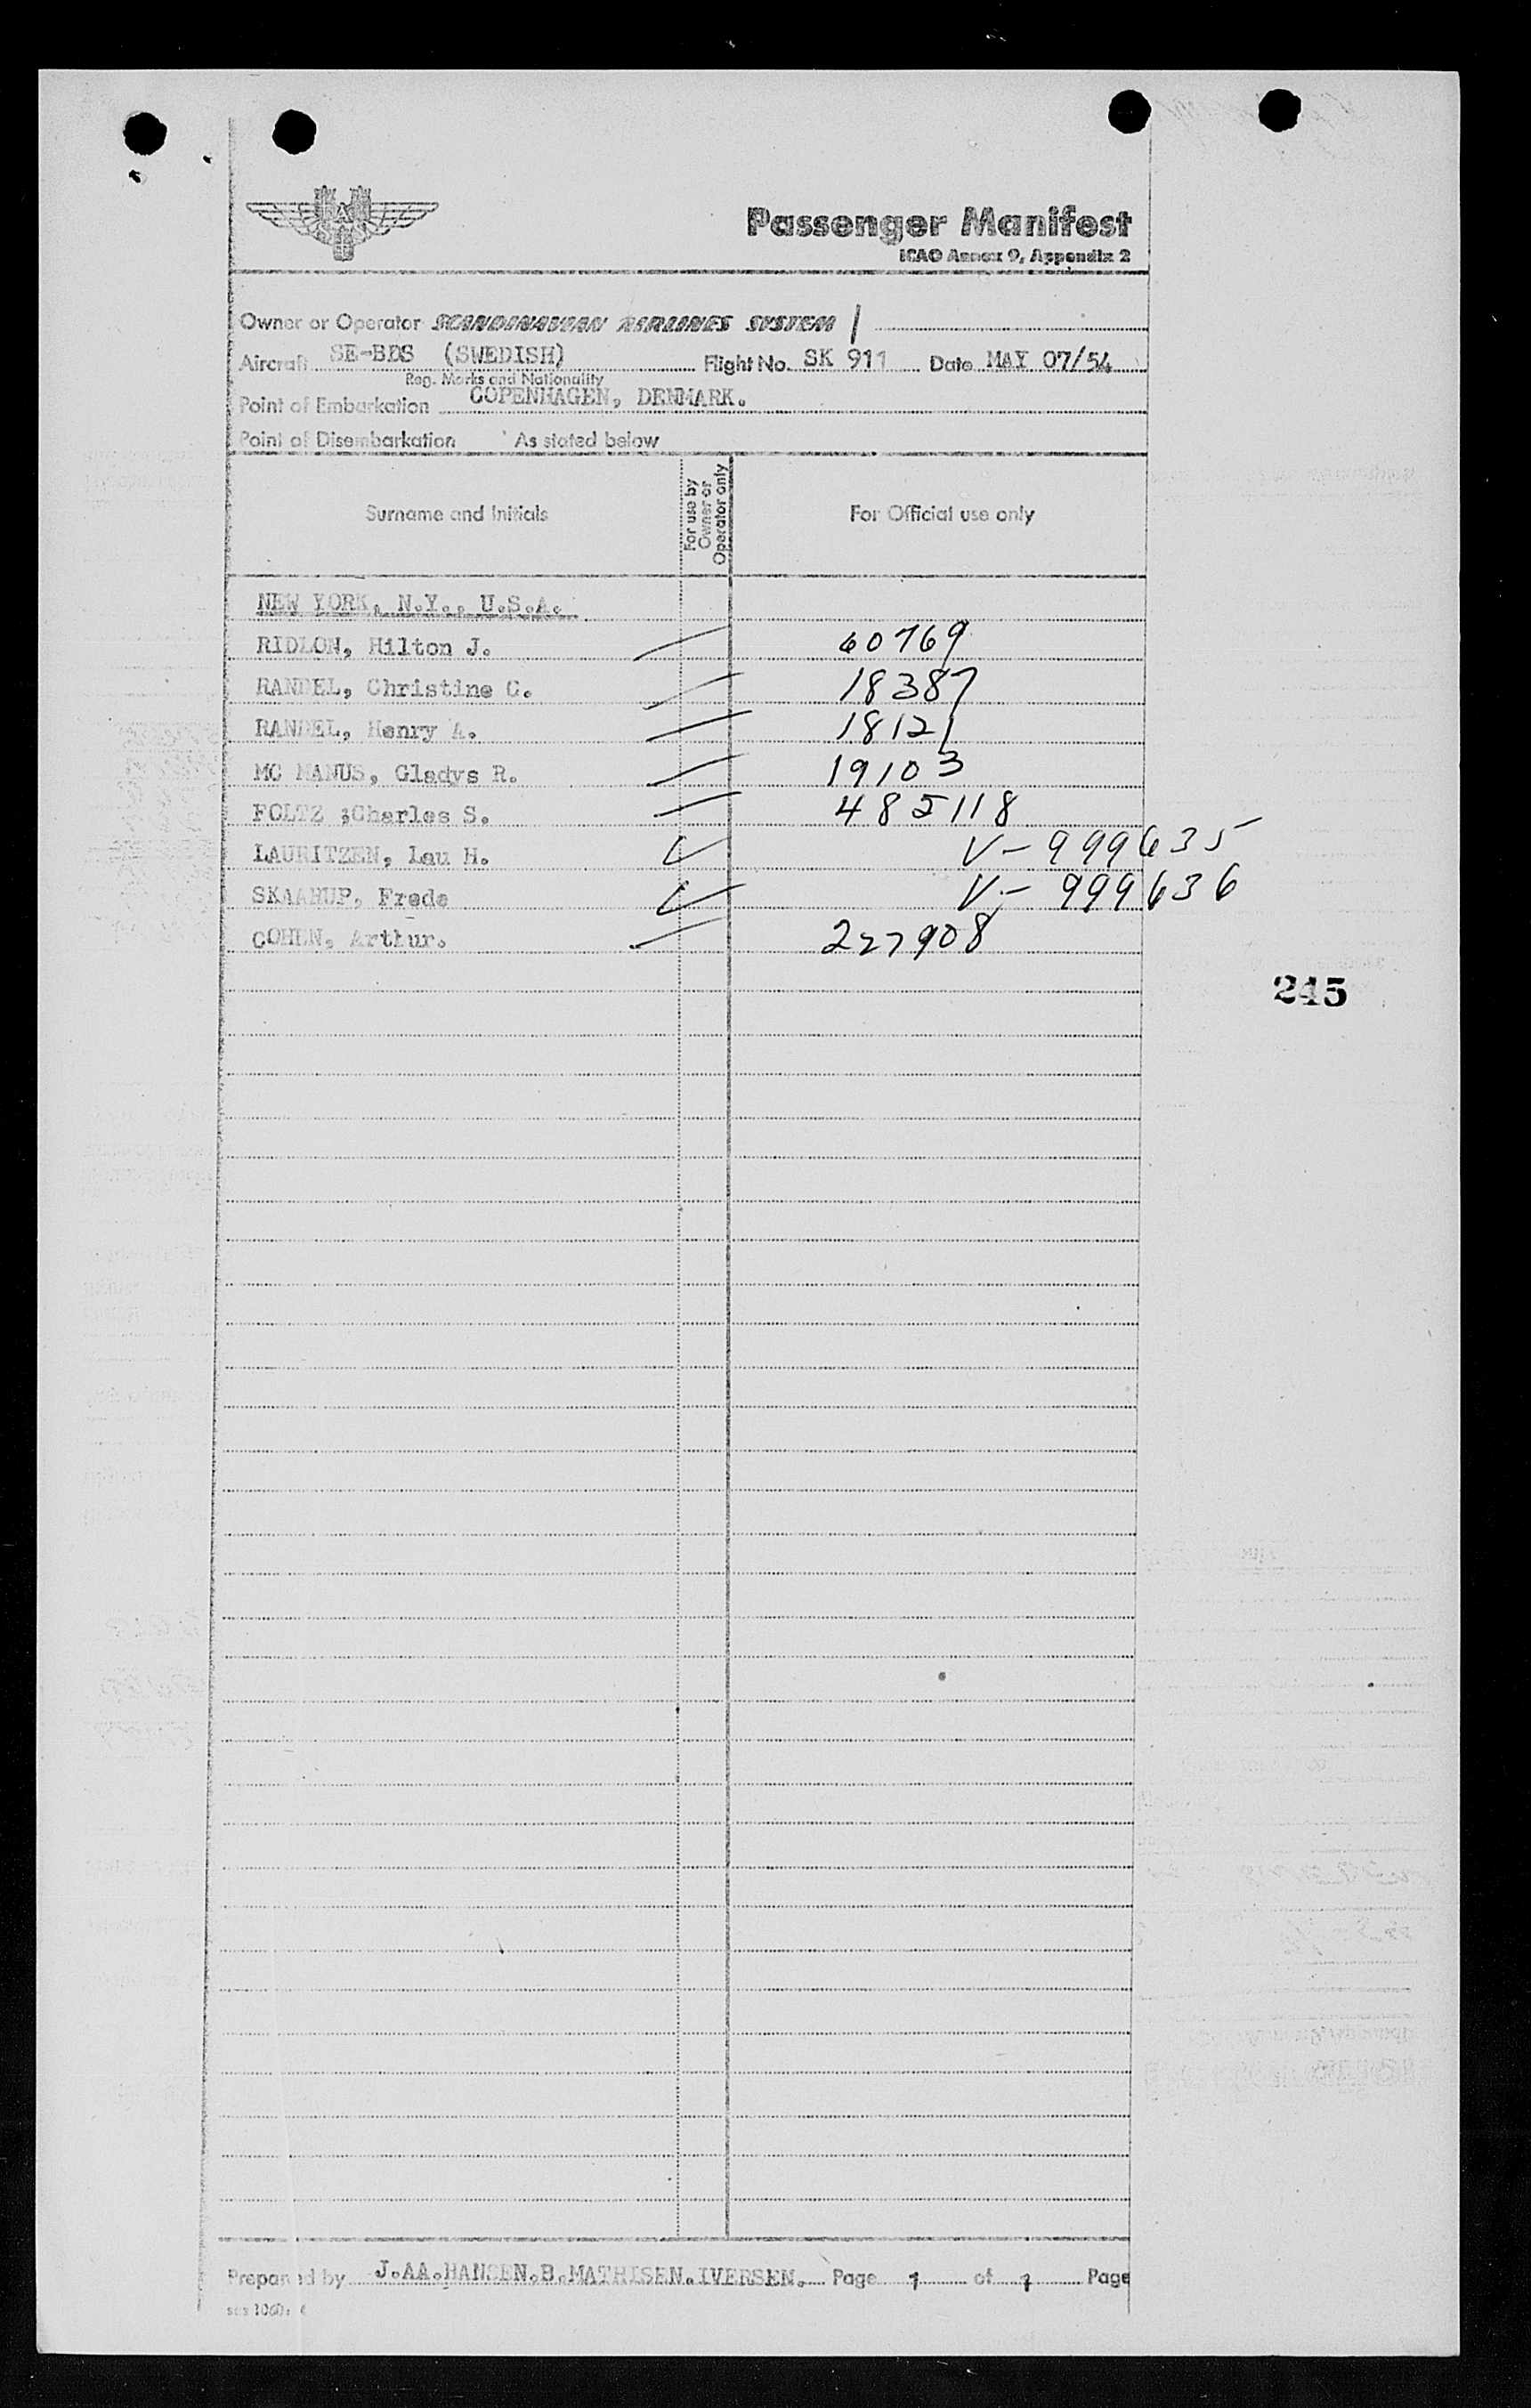 Passenger Manifest
ICAO Annex 9, Appendix 2
Owner or Operator SCANDINAVIAN AIRLINES SYSTEM /
Aircraft SE-BDS (SWEDISH) Flight No. SK 911 Date MAY 07/54
Reg. Marks and Nationality
Point of Embarkation COPENHAGEN, DENMARK.
Point of Disembarkation As stated below
Surname and Initials For use by Owner or Operator only For Official use only
NEW YORK, N.Y., U.S.A.
RIDLON, Hilton J. 60769
RANDEL, Christine C. 18387
RANDEL, Henry A. 18121
MC MANUS, Gladys R. 19103
FOLTZ ;Charles S. 485118
LAURITZEN, Lau H. V-999635
SKAARUP, Frede V-999636
COHEN, Arthur. 227908
245
Prepared by J.AA.HANSEN.B.MATHISEN.IVERSEN. Page 1 of 1 Page